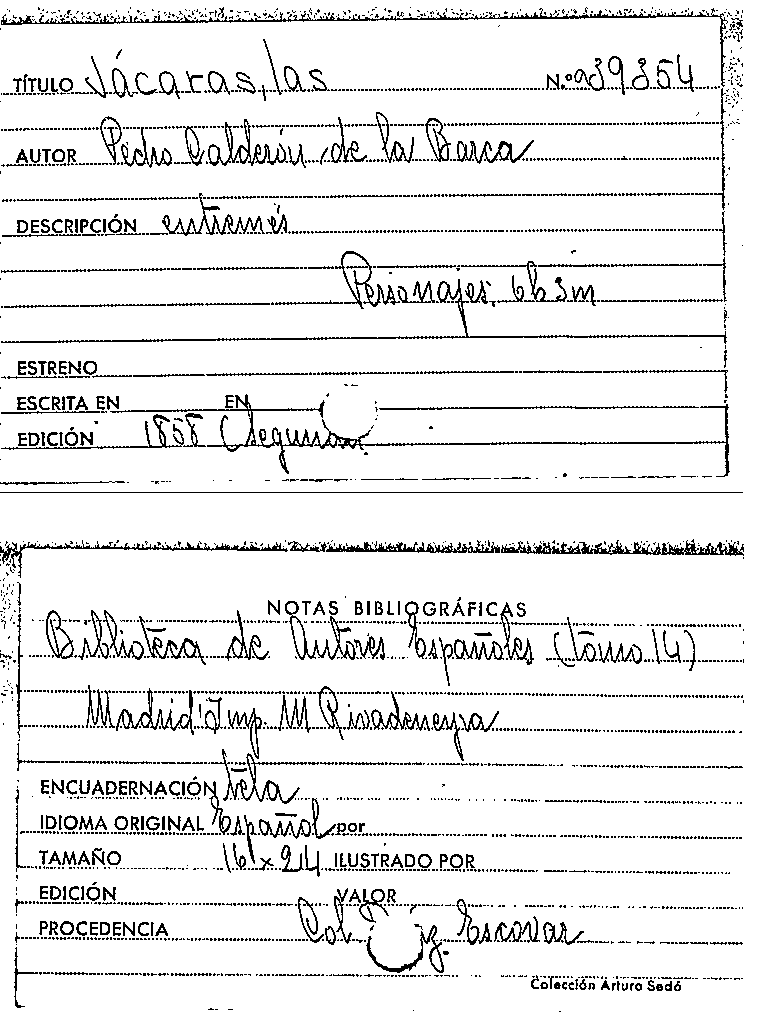 TÍTULO Jácaras, las N.º 39354
AUTOR Pedro Calderón de la Barca
DESCRIPCIÓN entremés
Personajes. 6h 3m
ESTRENO
ESCRITA EN EN
EDICIÓN 1858 (Segunda
NOTAS BIBLIOGRÁFICAS
Biblioteca de Autores Españoles (tomo 14)
Madrid Imp. M Rivadeneyra
ENCUADERNACIÓN tela
IDIOMA ORIGINAL Español por
TAMAÑO 16 x 24 ILUSTRADO POR
EDICIÓN VALOR
PROCEDENCIA Col. Escovar
Colección Arturo Sedó